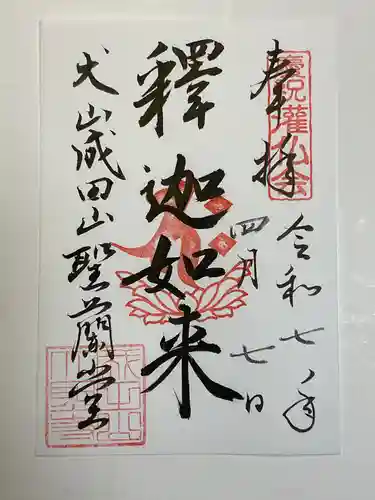 慶祝灌仏会
奉拝
令和七年
四月七日
釋迦如来
犬山成田山聖蘭堂